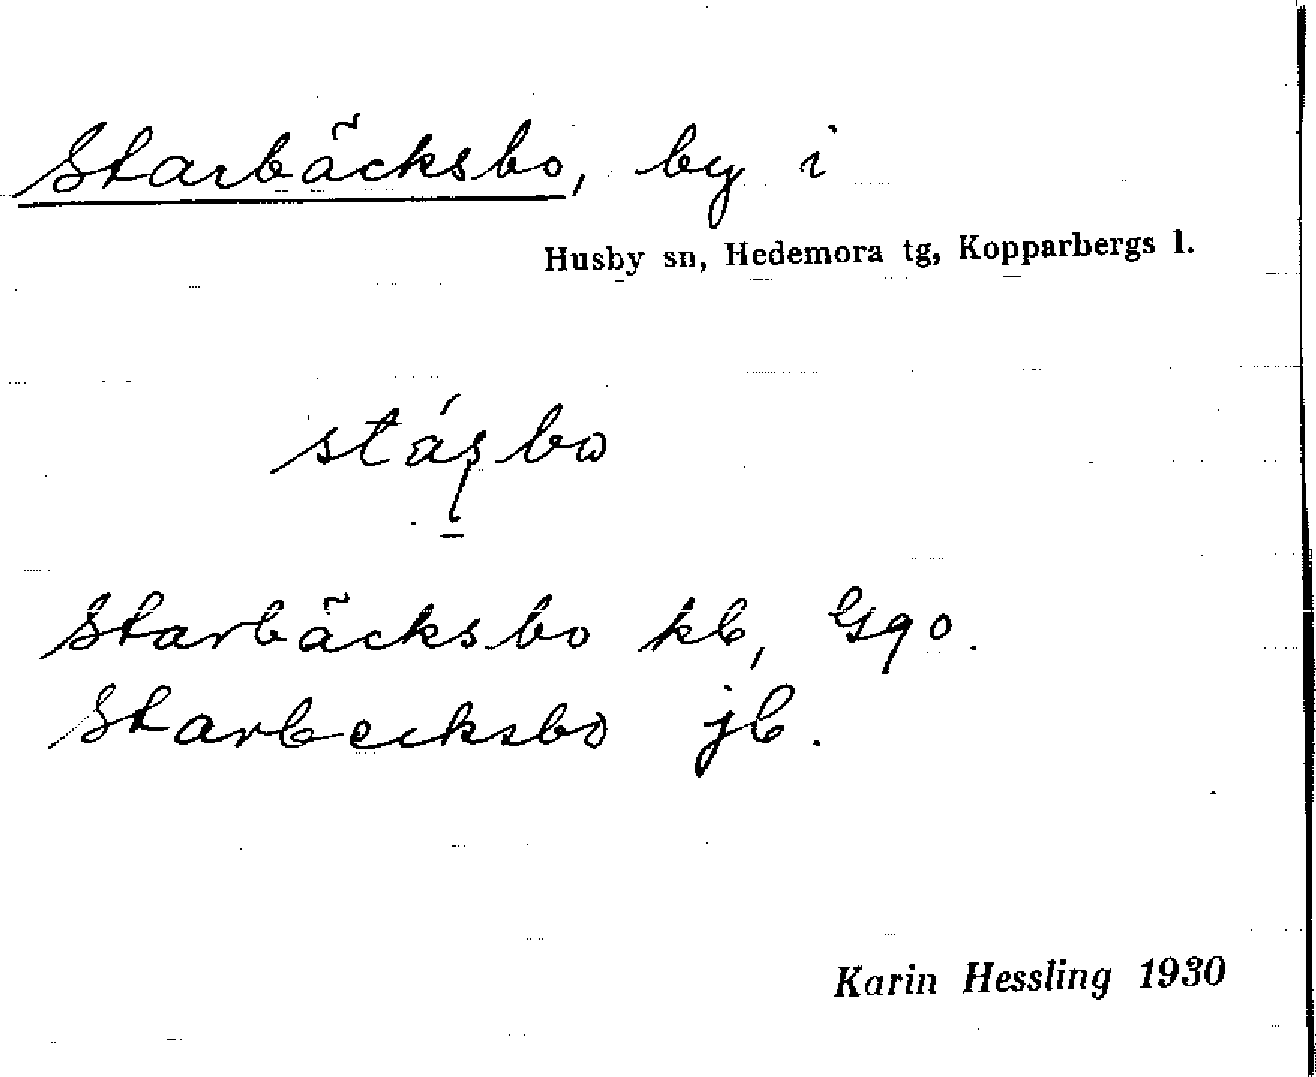 Starbäcksbo, by i
Husby sn, Hedemora tg, Kopparbergs l.
Starbäcksbo kb, Gqo.
Starbecksbo jb.
Karin Hessling 1930